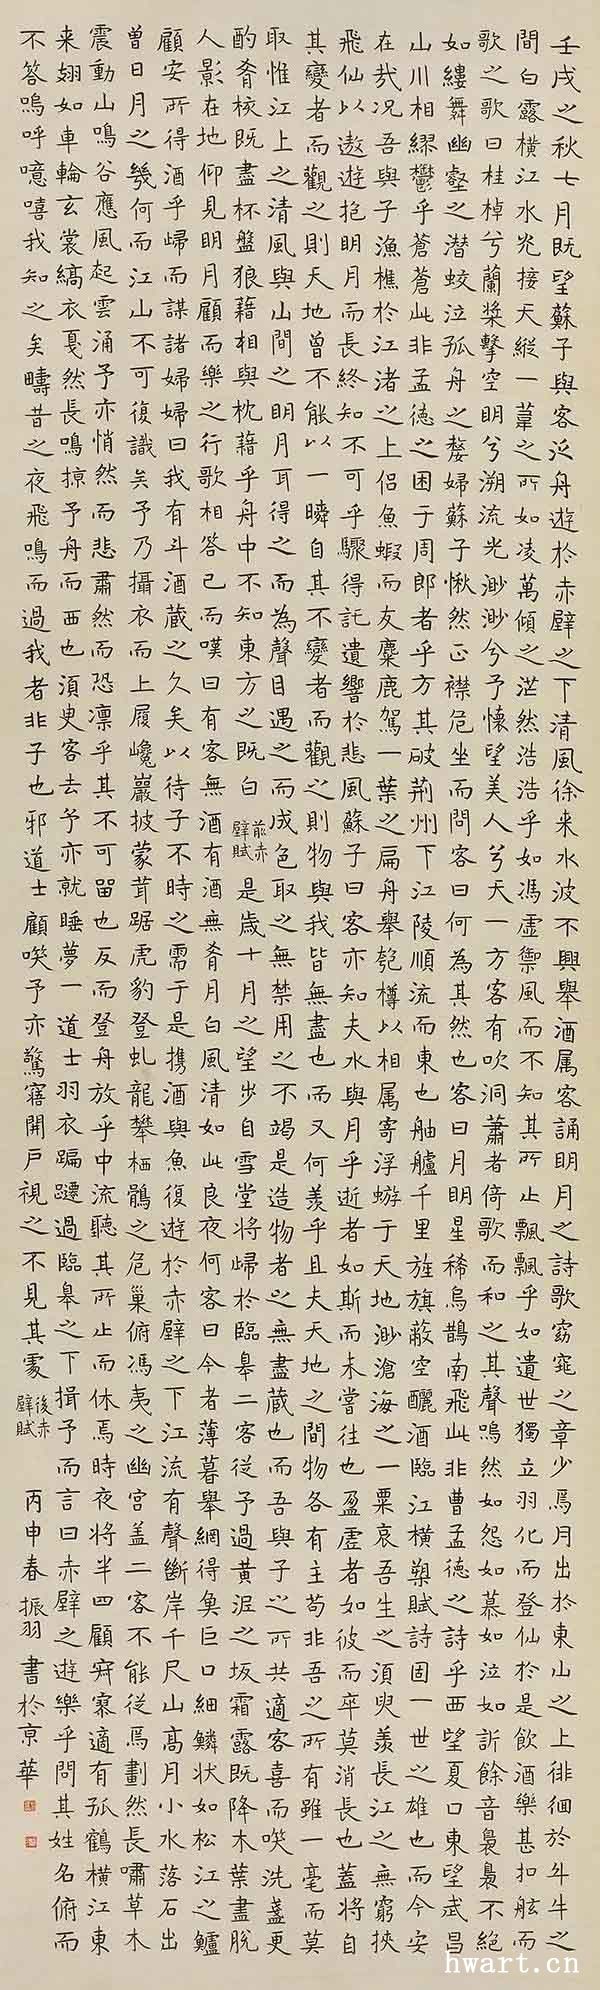 壬戌之秋七月既望蘇子與客泛舟遊於赤壁之下清風徐来水波不興舉酒属客誦明月之詩歌窈窕之章少焉月出於東山之上徘徊於斗牛之
間白露橫江水光接天縱一葦之所如凌萬傾之茫然浩浩乎如馮虛禦風而不知其所止飄飄乎如遺世獨立羽化而登仙於是飲酒樂甚扣舷而
歌之歌曰桂棹兮蘭槳擊空明兮溯流光渺渺兮予懷望美人兮天一方客有吹洞蕭者倚歌而和之其聲嗚然如怨如慕如泣如訴餘音裊裊不絕
如縷舞幽壑之潜蛟泣孤舟之嫠婦蘇子愀然正襟危坐而問客曰何為其然也客曰月明星稀烏鵲南飛此非曹孟德之詩乎西望夏口東望武昌
山川相繆鬱乎蒼蒼此非孟德之困于周郎者乎方其破荆州下江陵順流而東也舳艫千里旌旗蔽空釃酒臨江橫槊賦詩固一世之雄也而今安
在㢤况吾與子漁樵於江渚之上侣魚蝦而友麋鹿駕一葉之扁舟舉匏樽以相属寄浮蝣于天地渺滄海之一粟哀吾生之須臾羨長江之無窮挾
飛仙以遨遊抱明月而長終知不可乎驟得託遺響於悲風蘇子曰客亦知夫水與月乎逝者如斯而未嘗往也盈虛者如彼而卒莫消長也蓋將自
其變者而觀之則天地曾不能以一瞬自其不變者而觀之則物與我皆無盡也而又何羨乎且夫天地之間物各有主苟非吾之所有雖一毫而莫
取惟江上之清風與山間之明月耳得之而為聲目遇之而成色取之無禁用之不竭是造物者之無盡蔵也而吾與子之所共適客喜而笑洗盞更
酌肴核既盡杯盤狼藉相與枕藉乎舟中不知東方之既白 前赤壁賦 是歲十月之望步自雪堂将歸於臨皋二客從予過黃泥之坂霜露既降木葉盡脫
人影在地仰見明月顧而樂之行歌相答已而嘆曰有客無酒有酒無肴月白風清如此良夜何客曰今者薄暮舉網得魚巨口細鱗狀如松江之鱸
顧安所得酒乎歸而謀諸婦婦曰我有斗酒蔵之久矣以待子不時之需于是携酒與魚復遊於赤壁之下江流有聲斷岸千尺山高月小水落石出
曾日月之幾何而江山不可復識矣予乃攝衣而上履巉巖披蒙茸踞虎豹登虬龍攀栖鶻之危巢俯馮夷之幽宮盖二客不能從焉劃然長嘯草木
震動山鳴谷應風起雲涌予亦悄然而悲肅然而恐凛乎其不可留也反而登舟放乎中流聽其所止而休焉時夜将半四顧寂寥適有孤鶴橫江東
来翅如車輪玄裳縞衣戛然長鳴掠予舟而西也須臾客去予亦就睡夢一道士羽衣蹁躚過臨皋之下揖予而言曰赤壁之遊樂乎問其姓名俯而
不答嗚呼噫嘻我知之矣疇昔之夜飛鳴而過我者非子也邪道士顧笑予亦驚寤開戶視之不見其處 後赤壁賦 丙申春振羽書於京華
hwart.cn